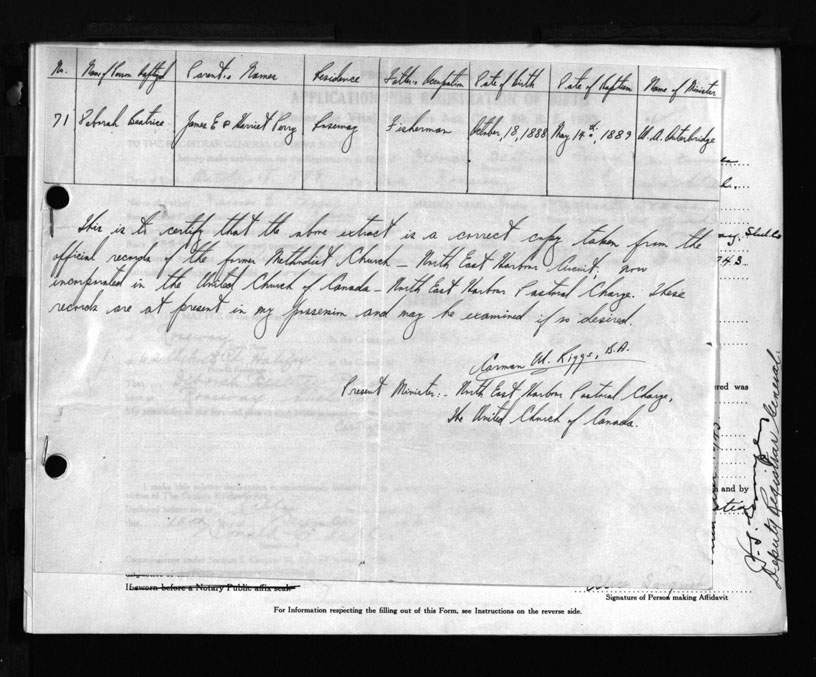 No. Name of Person Baptized Parents Names Residence Father's Occupation Date of Birth Date of Baptism Name of Minister
71 Deborah Beatrice James E & Harriet Perry Roseway Fisherman October, 18, 1888 May 14th, 1889 W. A. Outerbridge
This is to certify that the above extract is a correct copy taken from the
official records of the former Methodist Church – North East Harbour Circuit, now
incorporated in the United Church of Canada – North East Harbour Pastoral Charge. These
records are at present in my possession and may be examined if so desired.
Carman W. Riggs, B.A.
Present Minister:- North East Harbour Pastoral Charge,
The United Church of Canada.
ered was
and by
Deputy Registrar General
If sworn before a Notary Public affix seal
Signature of Person making Affidavit
For Information respecting the filling out of this Form, see Instructions on the reverse side.